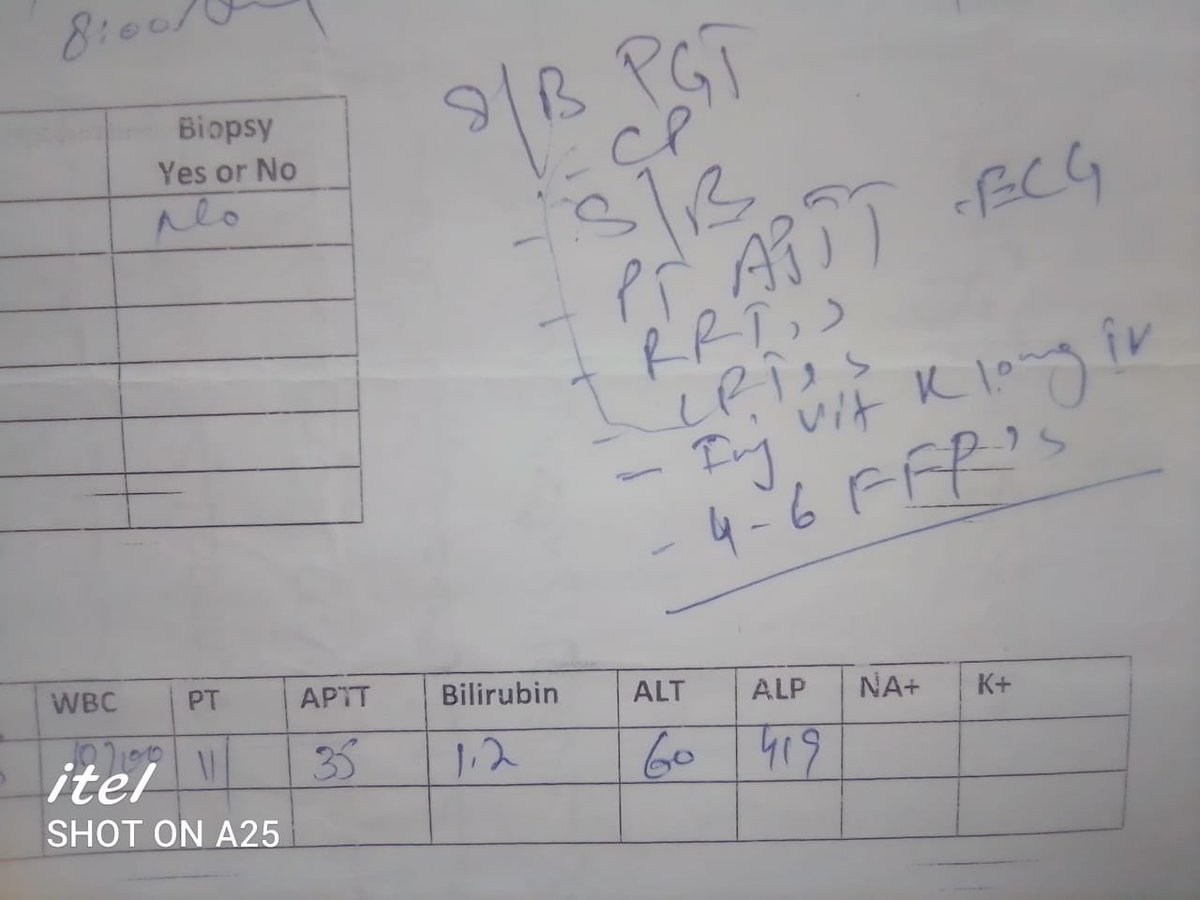 8:00
S/B PGT
Biopsy
Yes or No
No
- CP
- S/B
- PT APTT . ECG
- RFT's
- LFT's
- Inj vit K 10mg iv
- 4-6 FFP's
WBC PT APTT Bilirubin ALT ALP NA+ K+
11 35 1.2 60 419
itel
SHOT ON A25